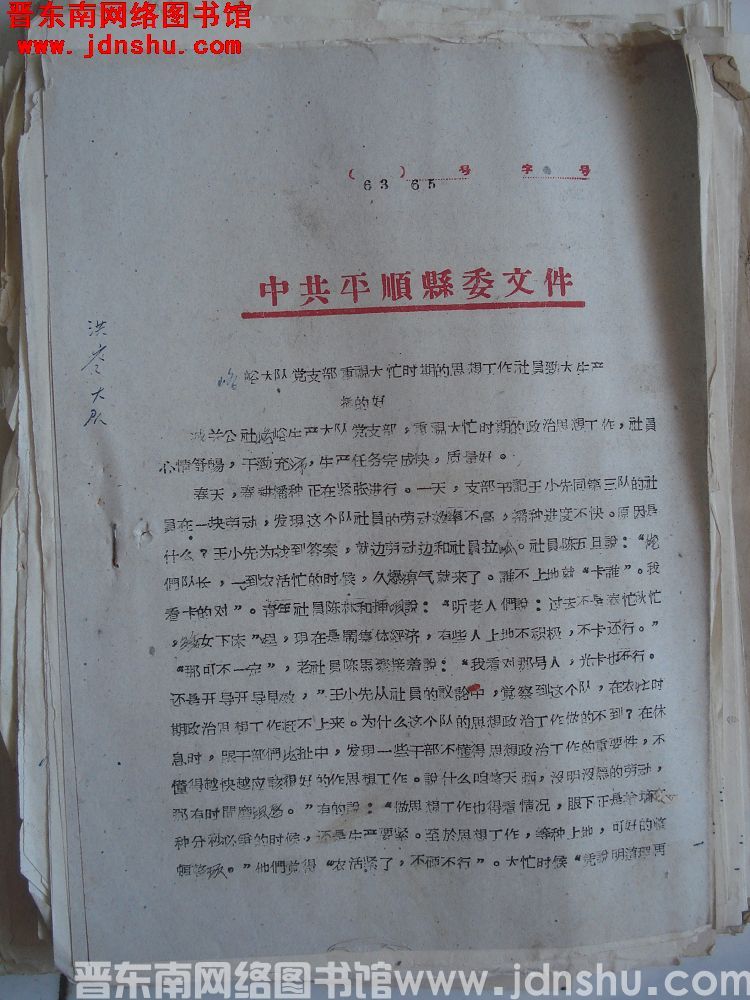 晋东南网络图书馆
www.jdnshu.com
( 63 ) 65 号 字 号
中共平順縣委文件
洪 大队
峪大队党支部重視大忙时期的思想工作社員勁大生产
播的好
公社 峪生产大队党支部，重視大忙时期的政治思想工作，社員
心情舒暢，干勁充沛，生产任务完成快，质量好。
春天，春耕播种正在紧张进行。一天，支部书記王小先同第三队的社
員在一块劳动，发现这个队社員的劳动效率不高，播种进度不快。原因是
什么？王小先为找到答案，就边劳动边和社員拉 。社員陈五旦說：“俺
們队长，一到农活忙的时候，久爆 气就来了。誰不上地就“卡誰”。我
看卡的对”。青年社員陈林和插 說：“听老人們說：过去不是农忙秋忙
， 女下床”吧，现在是鬧集体經济，有些人上地不积极，不卡还行。”
“那可不一定”，老社員陈馬 接着說：“我看对那号人，光卡也不行。
还是开导开导見效，”王小先从社員的議論中，覚察到这个队，在农忙时
期政治思想工作赶不上来。为什么这个队的思想政治工作做的不到？在休
息时，跟干部們 扯中，发现一些干部不懂得思想政治工作的重要性，不
懂得越快越应該很好的作思想工作。說什么咱整天 ，沒明沒黑的劳动，
那有时間磨 。”有的說：“做思想工作也得看情况，眼下正是
种分秒必爭的时候，还是生产要紧。至於思想工作，等种上地，可好的
頓 。”他們覚得“农活紧了，不硬不行”。大忙时候“凭說明道理再
晋东南网络图书馆www.jdnshu.com